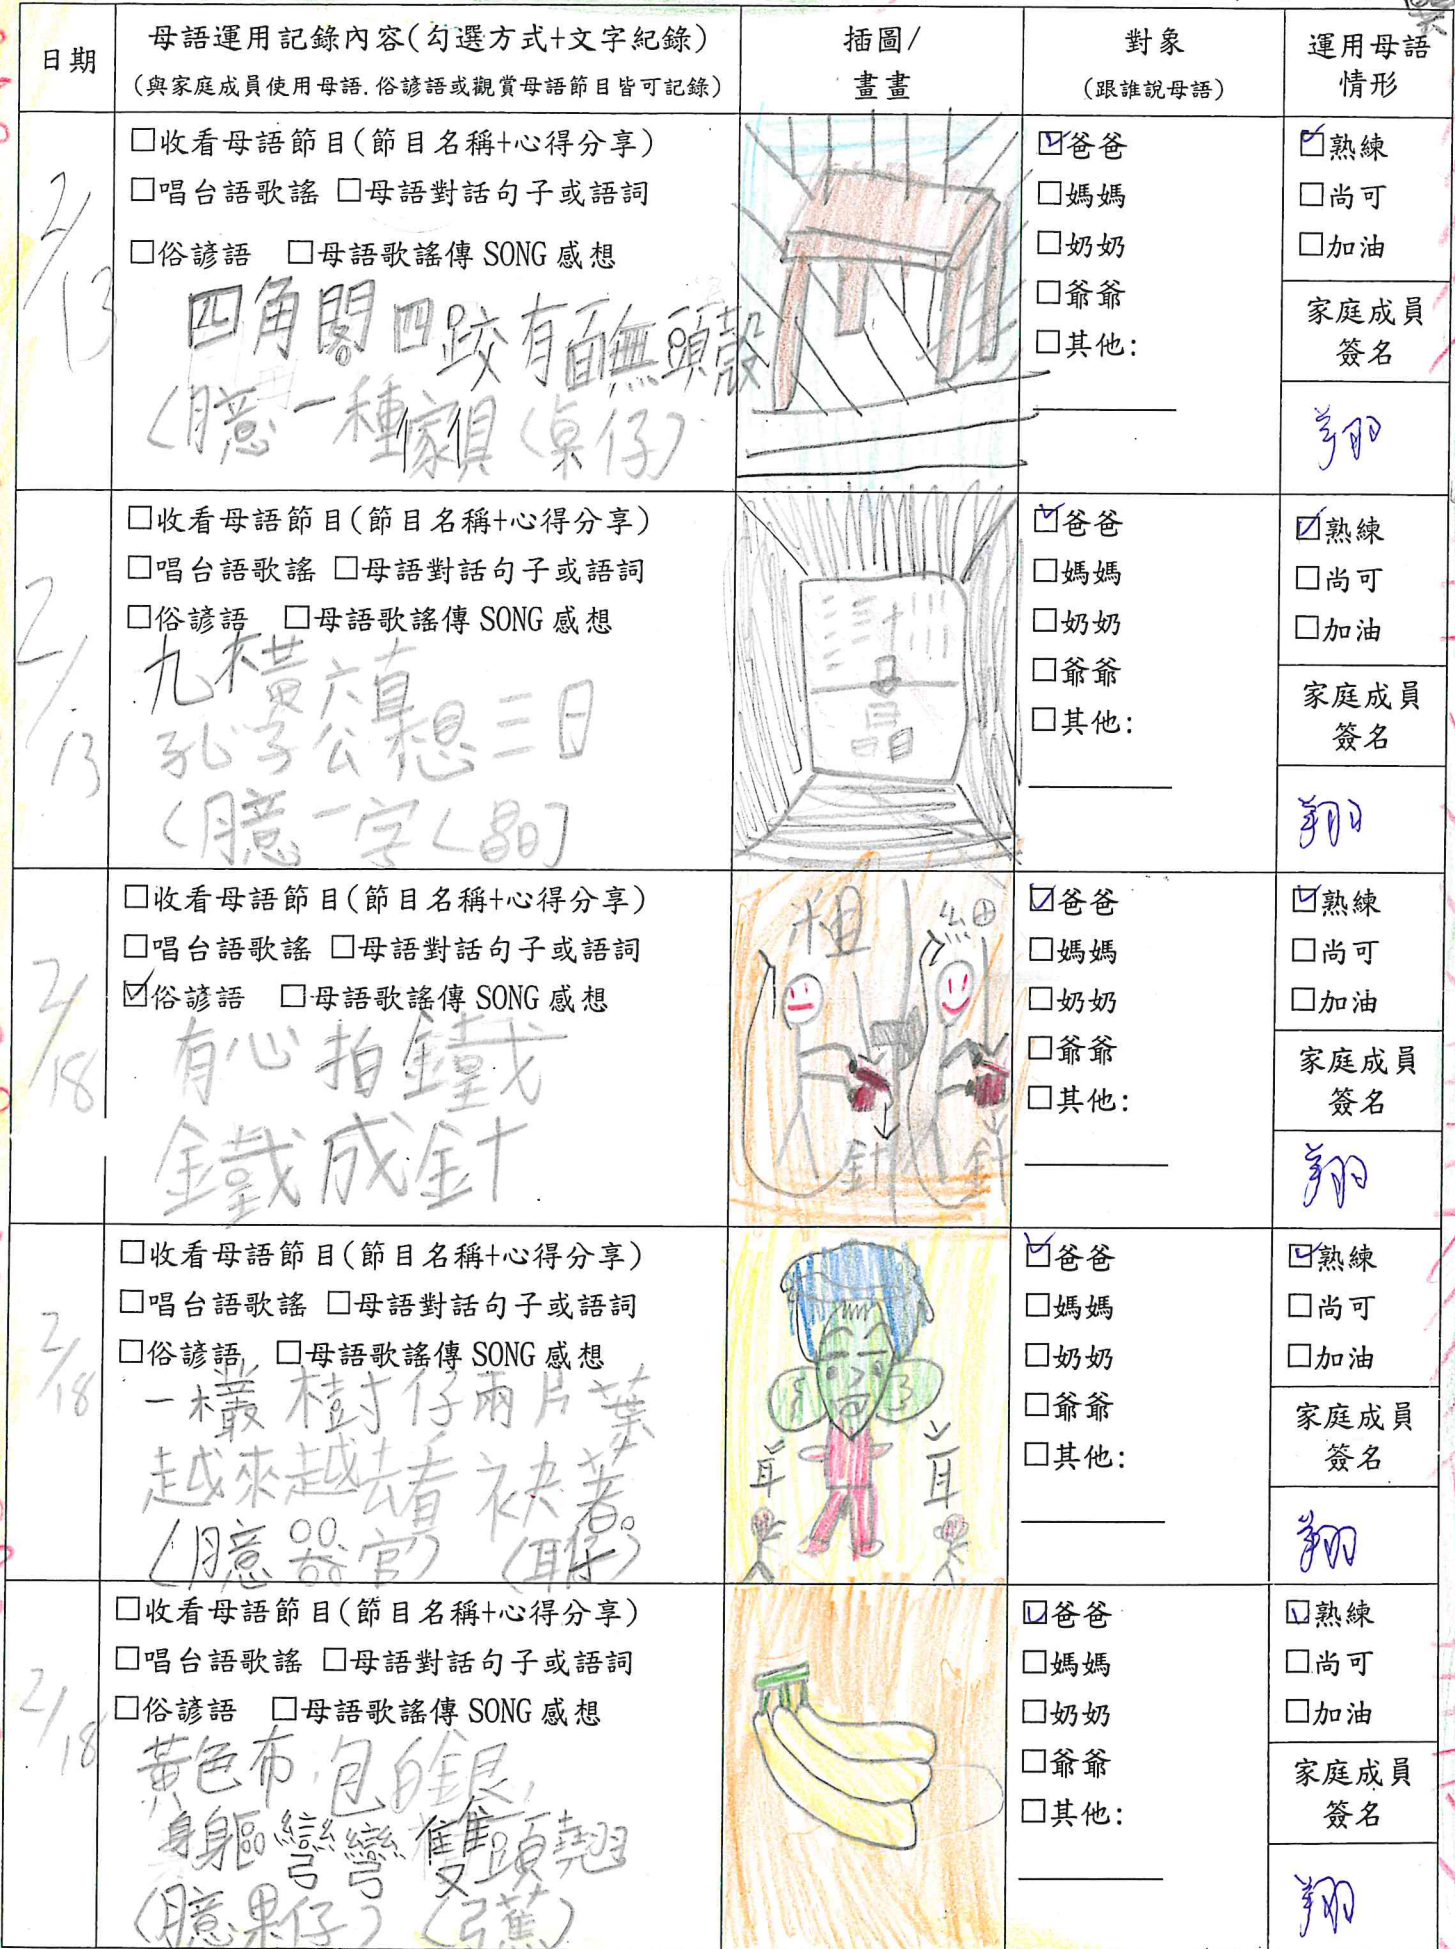 日期
母語運用記錄內容(勾選方式+文字紀錄)
(與家庭成員使用母語.俗諺語或觀賞母語節目皆可記錄)
插圖/
畫畫
對象
(跟誰說母語)
運用母語
情形
2/13
☐收看母語節目(節目名稱+心得分享)
☐唱台語歌謠 ☐母語對話句子或語詞
☐俗諺語 ☐母語歌謠傳 SONG 感想
四角閣四跤有面無頭殼
(臆一種傢俱(桌仔)
☑爸爸
☐媽媽
☐奶奶
☐爺爺
☐其他:
☑熟練
☐尚可
☐加油
家庭成員
簽名
翔
2/13
☐收看母語節目(節目名稱+心得分享)
☐唱台語歌謠 ☐母語對話句子或語詞
☐俗諺語 ☐母語歌謠傳 SONG 感想
九橫六直
孔子公想三日
(臆一字(晶)
晶
☑爸爸
☐媽媽
☐奶奶
☐爺爺
☐其他:
☑熟練
☐尚可
☐加油
家庭成員
簽名
翔
2/18
☐收看母語節目(節目名稱+心得分享)
☐唱台語歌謠 ☐母語對話句子或語詞
☑俗諺語 ☐母語歌謠傳 SONG 感想
有心拍鐵
鐵成針
粗 細
針 針
☑爸爸
☐媽媽
☐奶奶
☐爺爺
☐其他:
☑熟練
☐尚可
☐加油
家庭成員
簽名
翔
2/18
☐收看母語節目(節目名稱+心得分享)
☐唱台語歌謠 ☐母語對話句子或語詞
☐俗諺語 ☐母語歌謠傳 SONG 感想
一欉樹仔兩片葉
越來越去看袂著。
(臆器官) (耳仔)
耳 耳
☑爸爸
☐媽媽
☐奶奶
☐爺爺
☐其他:
☑熟練
☐尚可
☐加油
家庭成員
簽名
翔
2/18
☐收看母語節目(節目名稱+心得分享)
☐唱台語歌謠 ☐母語對話句子或語詞
☐俗諺語 ☐母語歌謠傳 SONG 感想
黃色布,包白銀,
身軀彎彎雙頭翹
(臆果仔) (弓蕉)
☑爸爸
☐媽媽
☐奶奶
☐爺爺
☐其他:
☑熟練
☐尚可
☐加油
家庭成員
簽名
翔